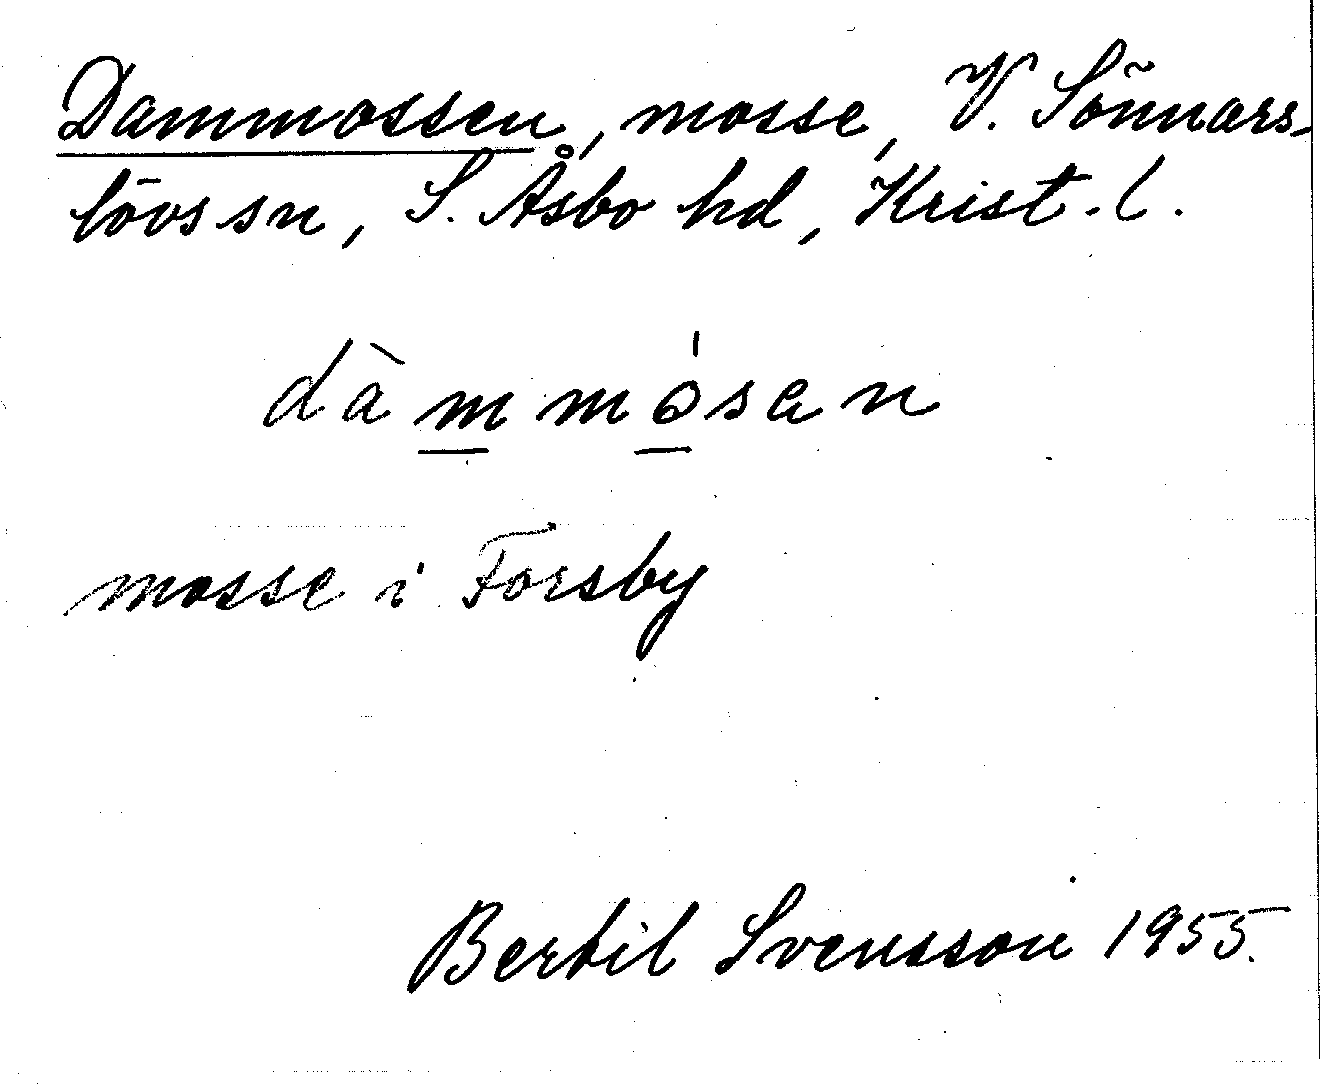 Dammossen, mosse, V. Sönnars-
lövs sn, S. Åsbo hd, Krist. l.
dàmmósan
mosse i Forsby
Bertil Svensson 1955.